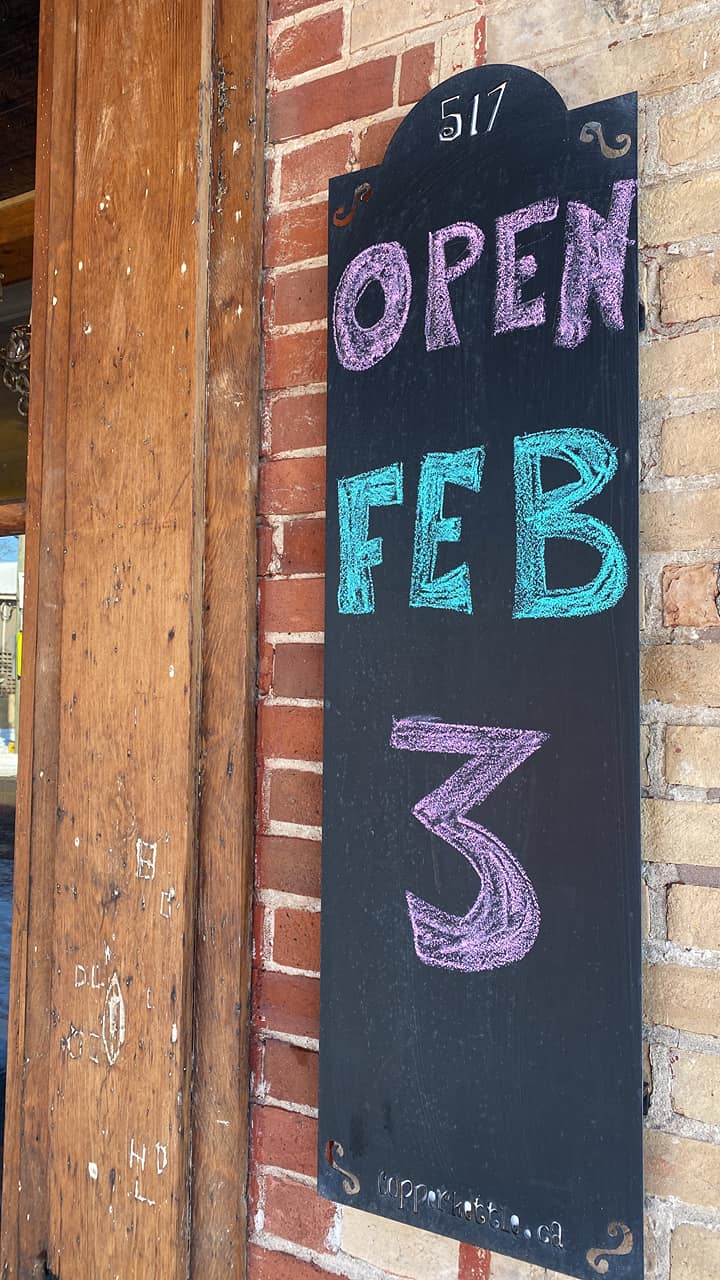 517
OPEN
FEB
3
copperkettle.ca
D.L
H D
L